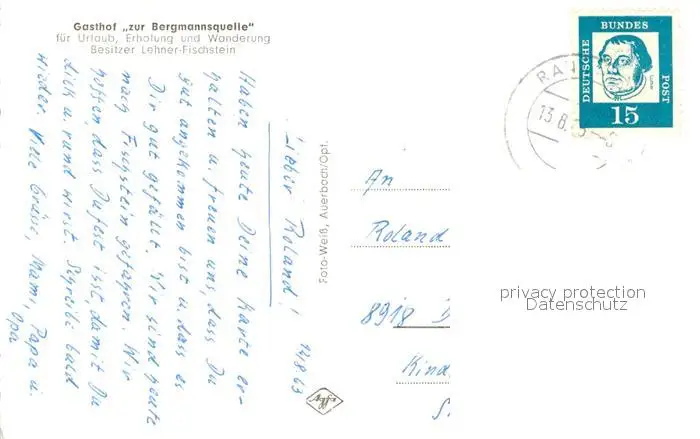 Gasthof „zur Bergmannsquelle"
für Urlaub, Erholung und Wanderung
Besitzer Lehner-Fischstein
14.8.63
Lieber Roland!
Haben heute Deine Karte er-
halten u. freuen uns, dass Du
gut angekommen bist u. dass es
Dir gut gefällt. Wir sind heute
nach Fischstein gefahren. Wir
hoffen, dass Du fest isst, damit Du
dick u. rund wirst. Schreibe bald
wieder. Viele Grüsse, Mami, Papa u.
Opa
Foto-Weiß, Auerbach/Opf.
Agfa
DEUTSCHE BUNDESPOST
Luther
15
13.8.
An
Roland
8918 D
Kind
privacy protection
Datenschutz